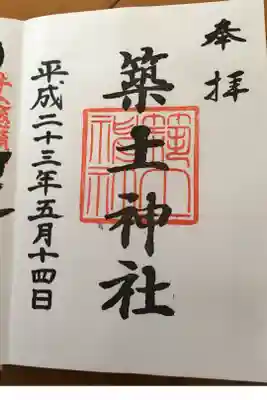 奉拝
築土神社
平成二十三年五月十四日